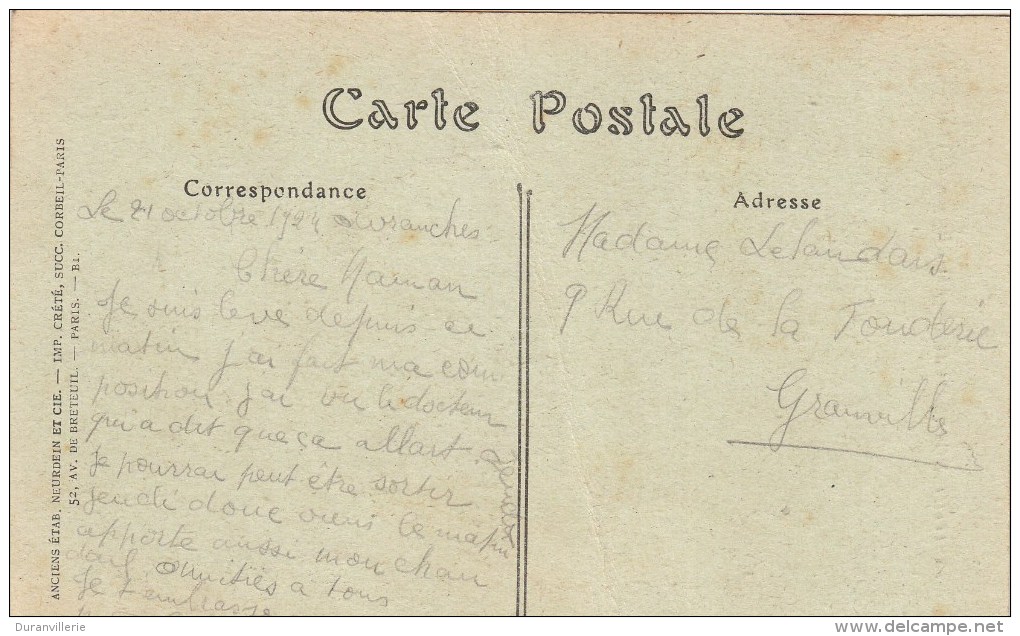 Carte Postale
Correspondance
Le 21 octobre 1924 Avranches
Chère Maman
Je suis levé depuis ce
matin j'ai fait ma com
position. j'ai vu le docteur
qui a dit que ça allait.
Je pourrai peut être sortir
jeudi donc viens le matin
apporte aussi mon chan
dail. Amitiés a tous
Je t'embrasse
Adresse
Madame Lelandais
9 Rue de la Fonderie
Granville
ANCIENS ÉTAB. NEURDEIN ET CIE. — IMP. CRÉTÉ, SUCC. CORBEIL-PARIS
52, AV. DE BRETEUIL. — PARIS. — B1.
Duranvillerie
delcampe.net